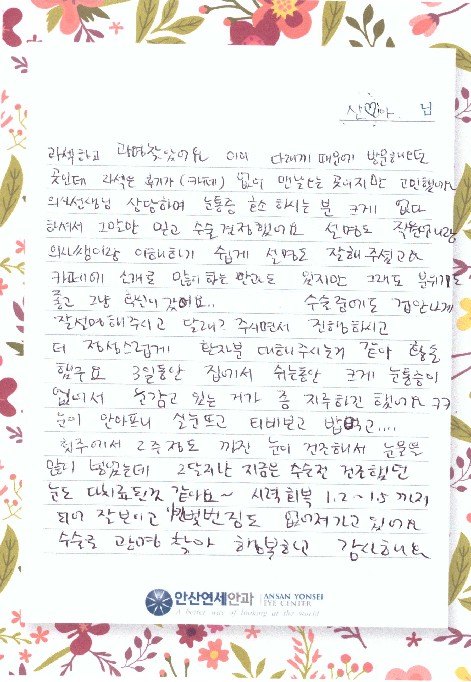 산♡아 님
라섹하고 광명찾았어요 이미 다래끼 때문에 방문했던
곳인데 라섹은 후기가 (카페) 없어 맨날 보는 곳이지만 고민했어요
의사선생님 상담하며 눈통증 호소 하시는 분 크게 없다
하셔서 그말만 믿고 수술 결정했어요 설명도 직원언니랑
의사쌤이랑 이해하기 쉽게 설명도 잘해주셨고요
카페에 소개로 많이하는 안과도 있지만 그래도 분위기도
좋고 그냥 확신이 갔어요.. 수술중에도 겁안나게
잘설명해주시고 달래주시면서 진행하시고
더 정성스럽게 환자분 대해주시는거 같아
했구요 3일동안 집에서 쉬는동안 크게 눈통증이
없어서 눈감고 있는 거가 좀 지루하긴 했어요 ㅋㅋ
눈이 안아프니 실눈뜨고 티비보고 밥먹고....
첫주에서 2주정도 까진 눈이 건조해서 눈물을
많이 넣었는데 2달지난 지금은 수술전 건조했던
눈도 다치료된것 같아요~ 시력회복 1.2~1.5 까지
되어 잘보이고 빛번짐도 없어져가고 있어요
수술로 광명 찾아 행복하고 감사해요
안산연세안과 ANSAN YONSEI EYE CENTER
A better way of looking at the world